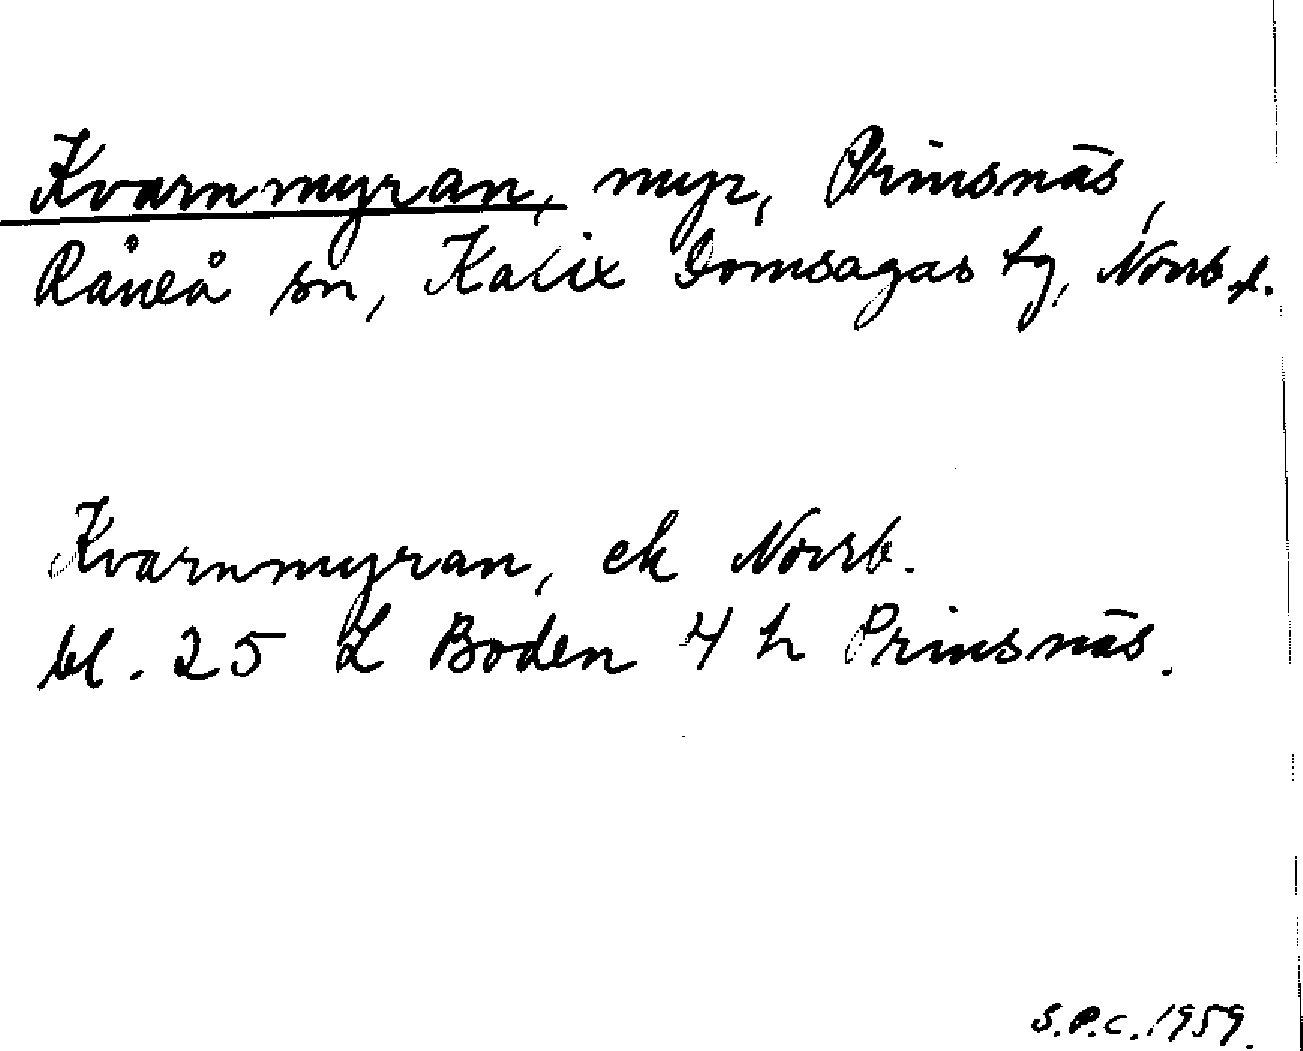 Kvarnmyran, myr, Prinsnäs,
Råneå sn, Kalix Domsagas tg, Norrb. l.
Kvarnmyran, ek Norrb.
bl. 25 L Boden 4 h Prinsnäs.
S.P.C. 1959.